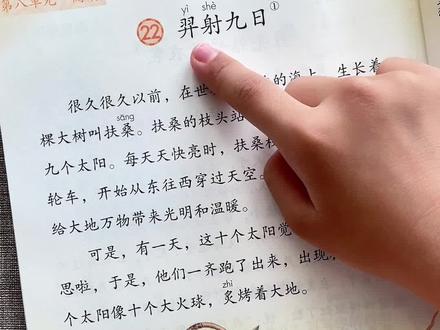 第八单元
yì shè
22 羿射九日①
很久很久以前，在世的海上，生长着
sāng
棵大树叫扶桑。扶桑的枝头站
九个太阳。每天天快亮时，扶桑
轮车，开始从东往西穿过天空。
给大地万物带来光明和温暖。
可是，有一天，这十个太阳觉
思啦，于是，他们一齐跑了出来，出现
zhì
个太阳像十个大火球，炙烤着大地。